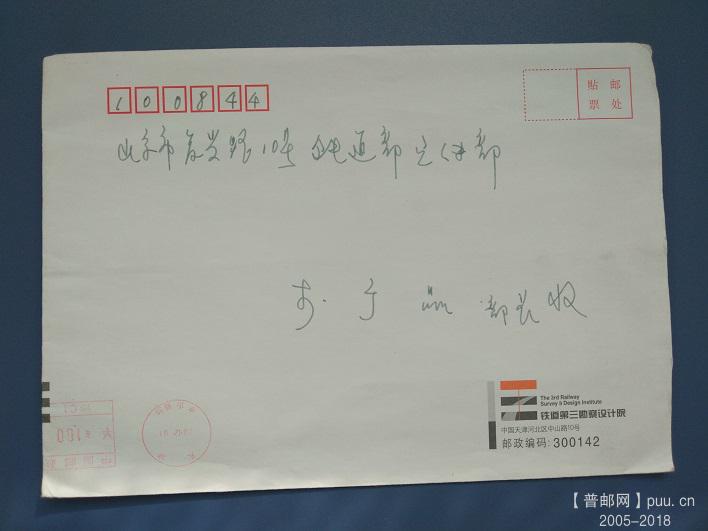 100844
贴 邮
票 处
北京市复兴路10号 铁道部
部长 收
The 3rd Railway
Survey & Design Institute
铁道第三勘察设计院
中国天津河北区中山路10号
邮政编码: 300142
【普邮网】puu.cn
2005-2018